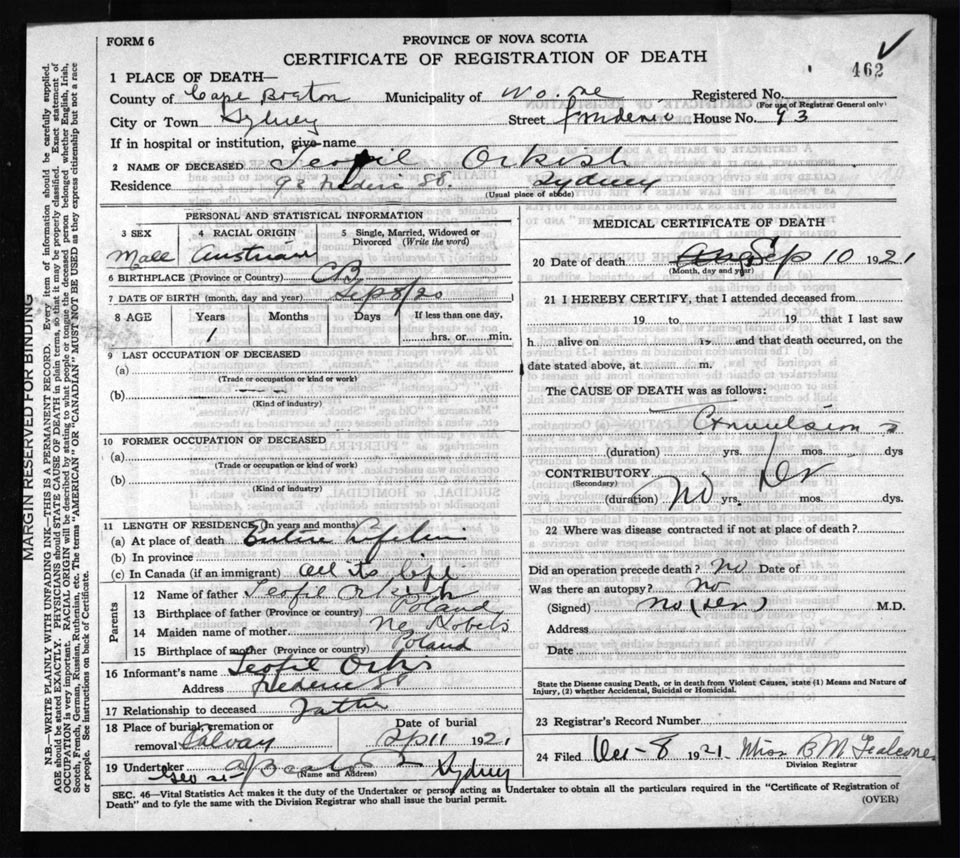 FORM 6
PROVINCE OF NOVA SCOTIA
CERTIFICATE OF REGISTRATION OF DEATH
462
1 PLACE OF DEATH—
County of Cape Breton Municipality of Registered No.
(For use of Registrar General only)
City or Town Sydney Street House No. 93
If in hospital or institution, give name
2 NAME OF DECEASED Teofil Orkish
Residence Sydney
(Usual place of abode)
PERSONAL AND STATISTICAL INFORMATION
3 SEX 4 RACIAL ORIGIN 5 Single, Married, Widowed or Divorced (Write the word)
Male Austrian
6 BIRTHPLACE (Province or Country) CB
7 DATE OF BIRTH (month, day and year) Sep 8/20
8 AGE Years Months Days If less than one day,
1 hrs. or min.
9 LAST OCCUPATION OF DECEASED
(a)
(Trade or occupation or kind of work)
(b)
(Kind of industry)
10 FORMER OCCUPATION OF DECEASED
(a)
(Trade or occupation or kind of work)
(b)
(Kind of industry)
11 LENGTH OF RESIDENCE (In years and months)
(a) At place of death Entire
(b) In province
(c) In Canada (if an immigrant) all its life
Parents
12 Name of father Teofil Orkish
13 Birthplace of father (Province or country) Poland
14 Maiden name of mother
15 Birthplace of mother (Province or country) Poland
16 Informant's name Teofil
Address
17 Relationship to deceased Father
18 Place of burial, cremation or removal Date of burial
Sep 11 1921
19 Undertaker Sydney
(Name and Address)
MEDICAL CERTIFICATE OF DEATH
20 Date of death Sep 10 1921
(Month, day and year)
21 I HEREBY CERTIFY, that I attended deceased from
19 to 19 that I last saw
h alive on 19 and that death occurred, on the
date stated above, at m.
The CAUSE OF DEATH was as follows:
Convulsions
(duration) yrs. mos. dys
CONTRIBUTORY
(Secondary)
(duration) yrs. mos. dys.
No Dr
22 Where was disease contracted if not at place of death?
Did an operation precede death? No Date of
Was there an autopsy? No
(Signed) No (Dr) M.D.
Address
Date
State the Disease causing Death, or in death from Violent Causes, state (1) Means and Nature of
Injury, (2) whether Accidental, Suicidal or Homicidal.
23 Registrar's Record Number
24 Filed 8 1921. Miss B M
Division Registrar
SEC. 46—Vital Statistics Act makes it the duty of the Undertaker or person acting as Undertaker to obtain all the particulars required in the "Certificate of Registration of
Death" and to fyle the same with the Division Registrar who shall issue the burial permit.
(OVER)
MARGIN RESERVED FOR BINDING
N.B.—WRITE PLAINLY WITH UNFADING INK—THIS IS A PERMANENT RECORD. Every item of information should be carefully supplied.
AGE should be stated EXACTLY. PHYSICIANS should STATE CAUSE OF DEATH in plain terms, so that it may be properly classified. Exact statement of
OCCUPATION is very important. RACIAL ORIGIN will be described by stating to what people or tongue the deceased person belonged whether English, Irish,
Scotch, French, German, Russian, Ruthenian, etc. The terms "AMERICAN" OR "CANADIAN" MUST NOT BE USED as they express citizenship but not a race
or people. See instructions on back of Certificate.